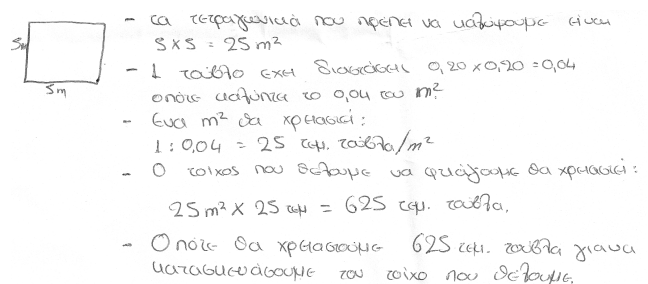 - τα τετραγωνικά που πρέπει να καλύψουμε είναι
5m
5 x 5 = 25 m²
- 1 τούβλο έχει διαστάσεις 0,20 x 0,20 = 0,04
5m
οπότε καλύπτει το 0,04 του m².
- Ένα m² θα χρειαστεί:
1 : 0,04 = 25 τεμ. τούβλα/m²
- Ο τοίχος που θέλουμε να φτιάξουμε θα χρειαστεί:
25 m² x 25 τεμ = 625 τεμ. τούβλα.
- Οπότε θα χρειαστούμε 625 τεμ. τούβλα για να
κατασκευάσουμε τον τοίχο που θέλουμε.